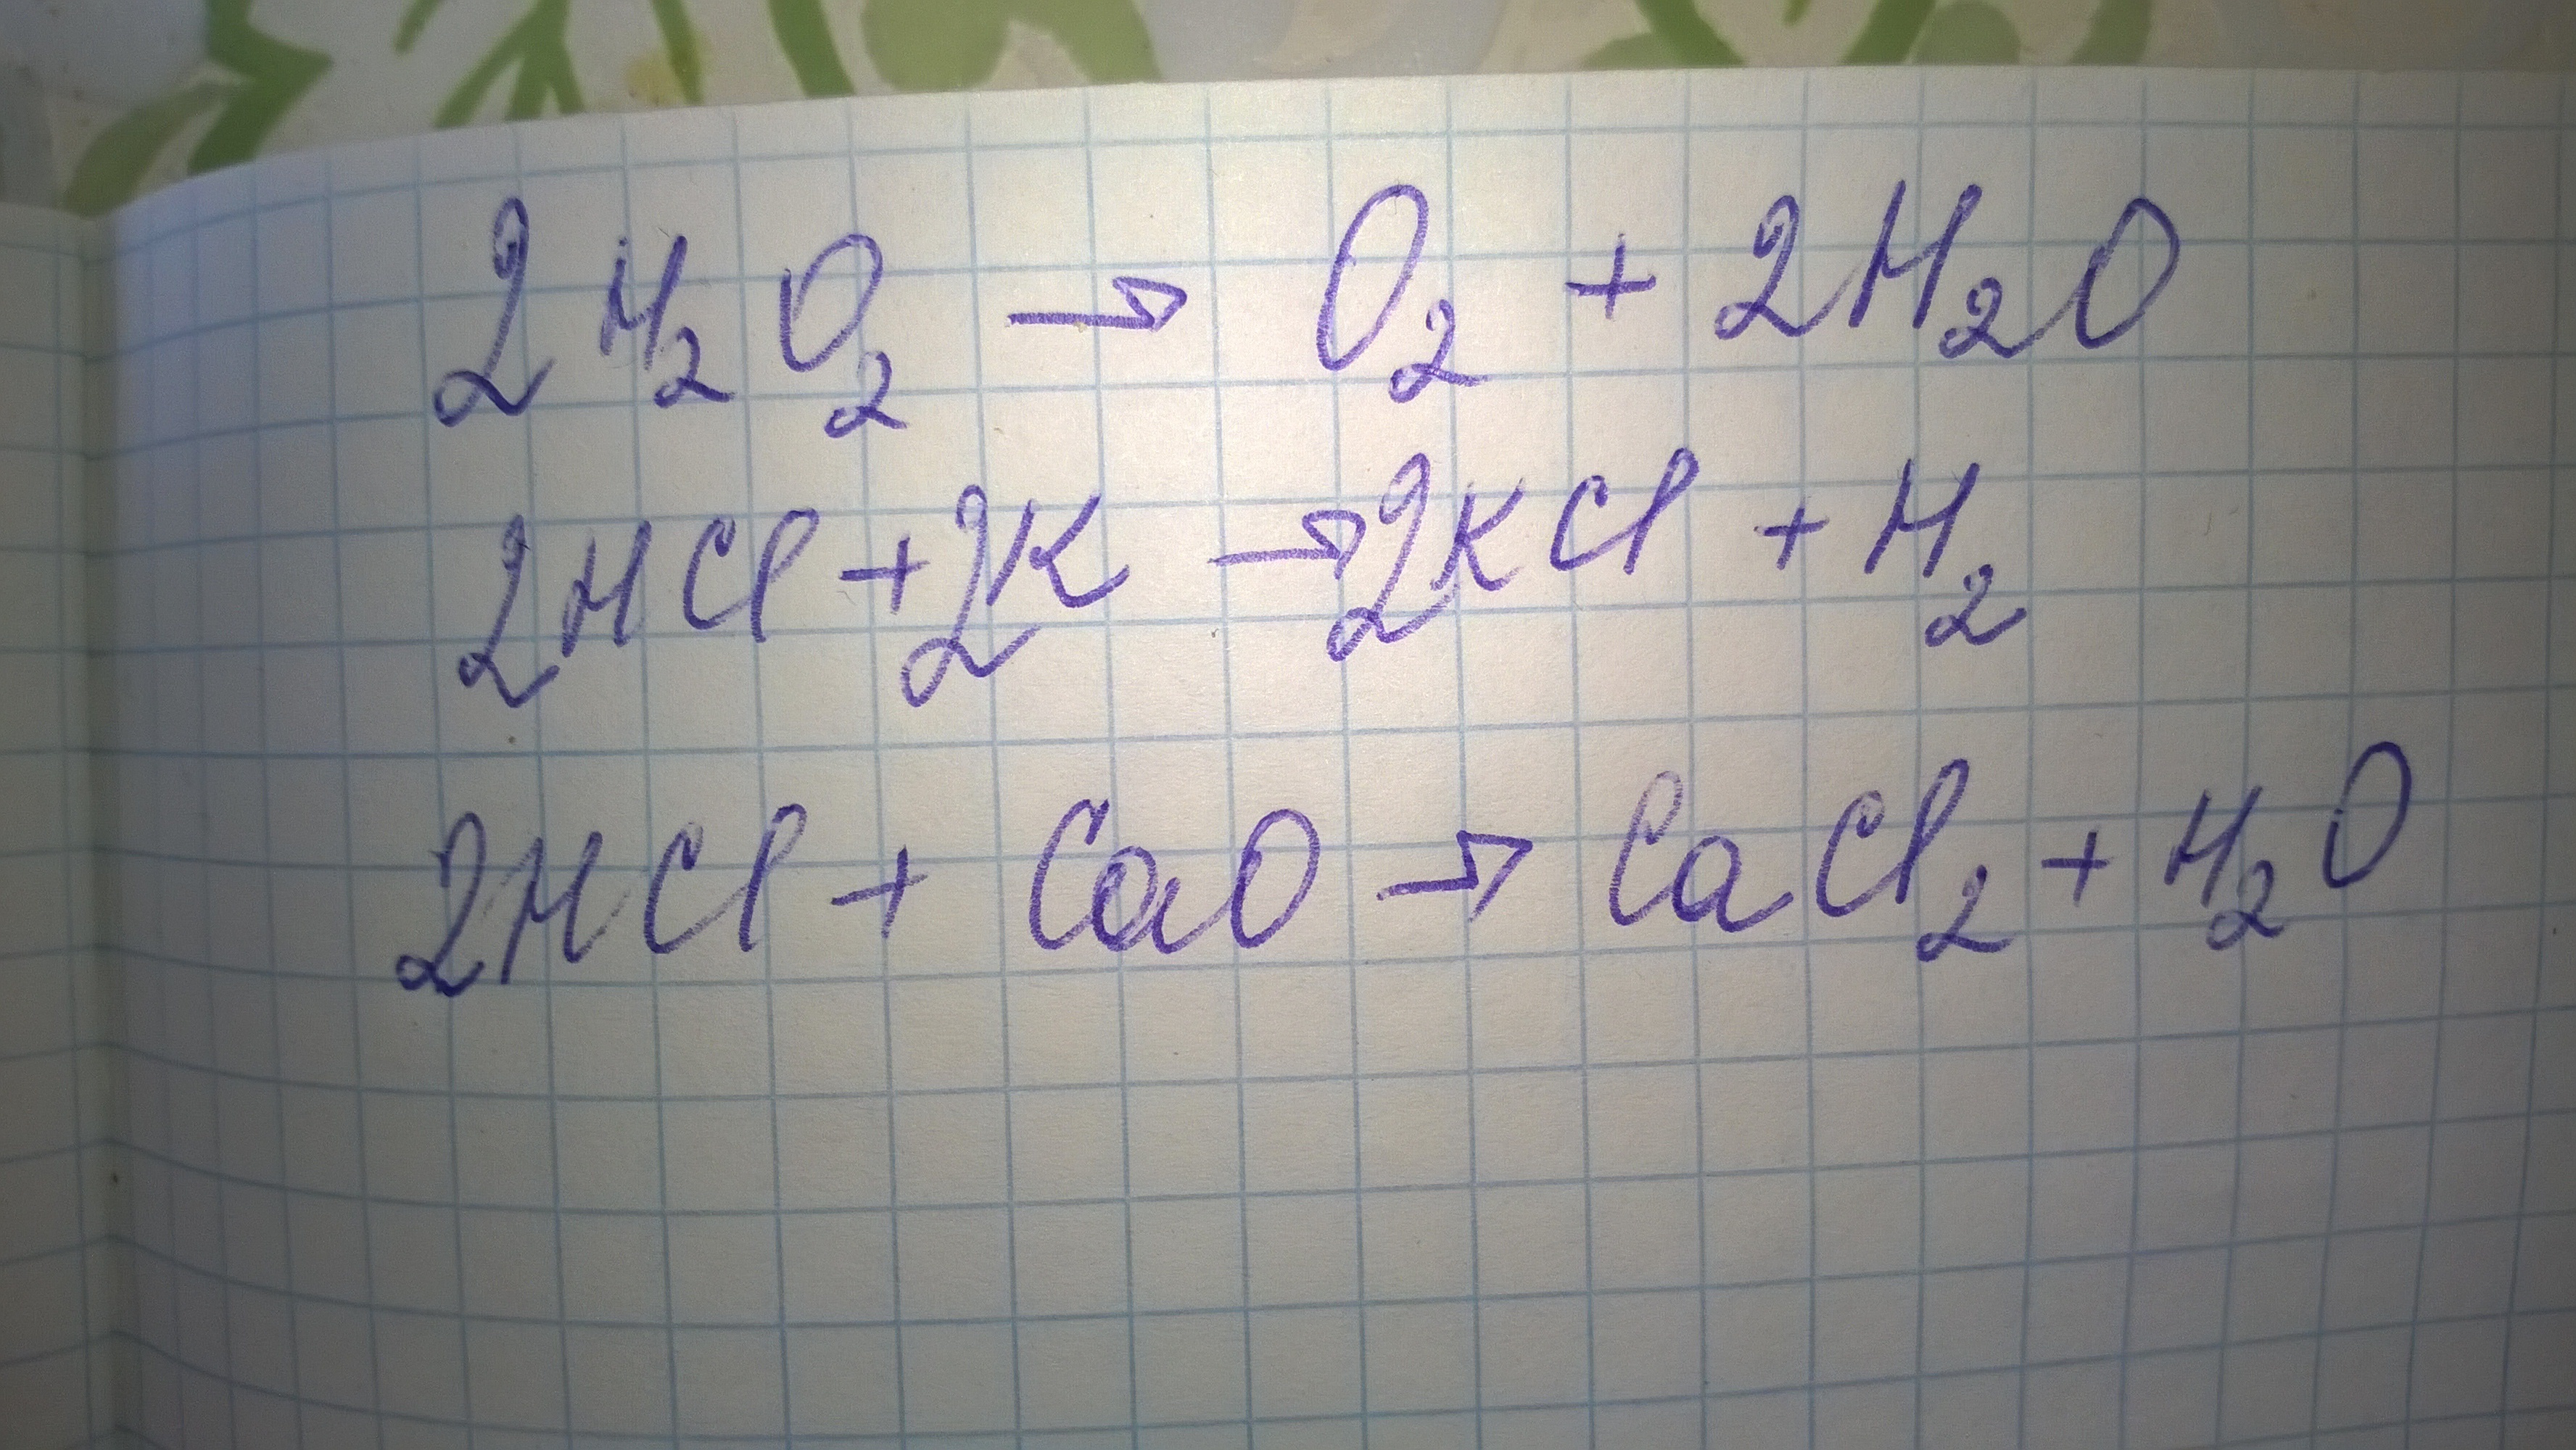 2H₂O₂ → O₂ + 2H₂O
2HCl + 2K → 2KCl + H₂
2HCl + CaO → CaCl₂ + H₂O